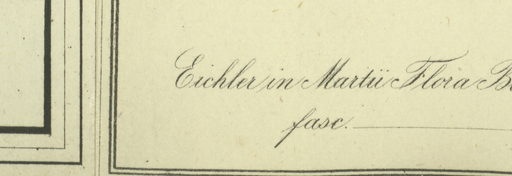 Eichler in Martii Flora Br
fasc.